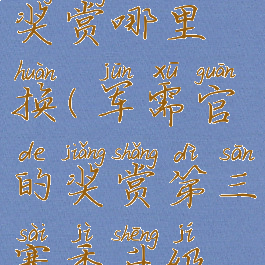 奖赏哪里
huàn jūn xū guān
换(军需官
de jiǎng shǎng dì sān
的奖赏第三
sài jì shēng jí
赛季升级